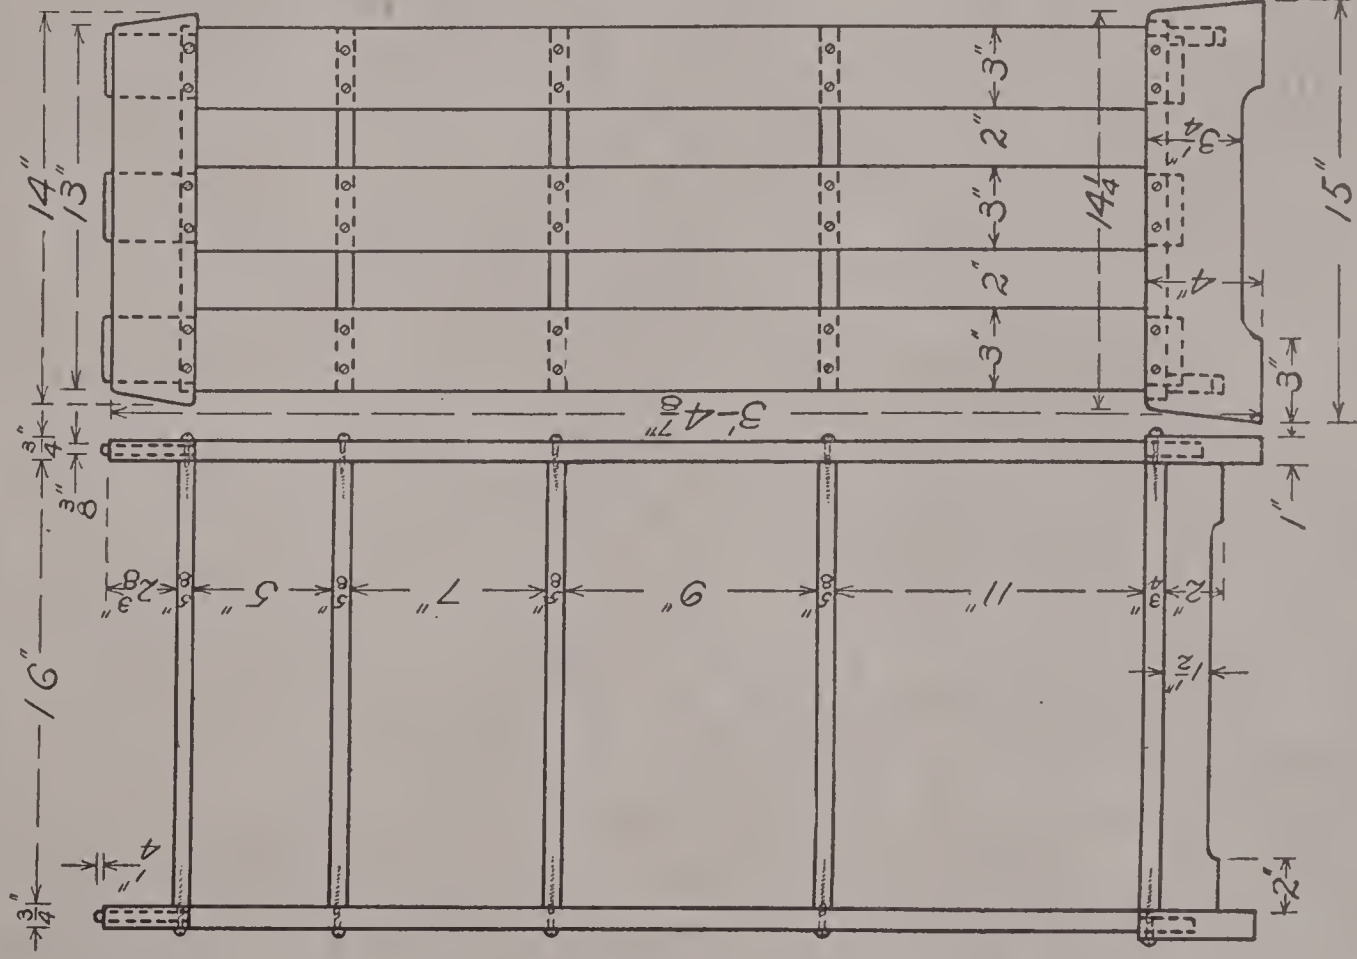 14"
13"
3"
2"
3"
2"
3"
14 1/4"
3 1/4"
4"
15"
3"
1"
3'-4 7/8"
3/4"
3/8"
16"
2 3/8"
5/8"
5"
5/8"
7"
5/8"
9"
5/8"
11"
3/4"
2"
1 1/2"
1/4"
3/4"
2"